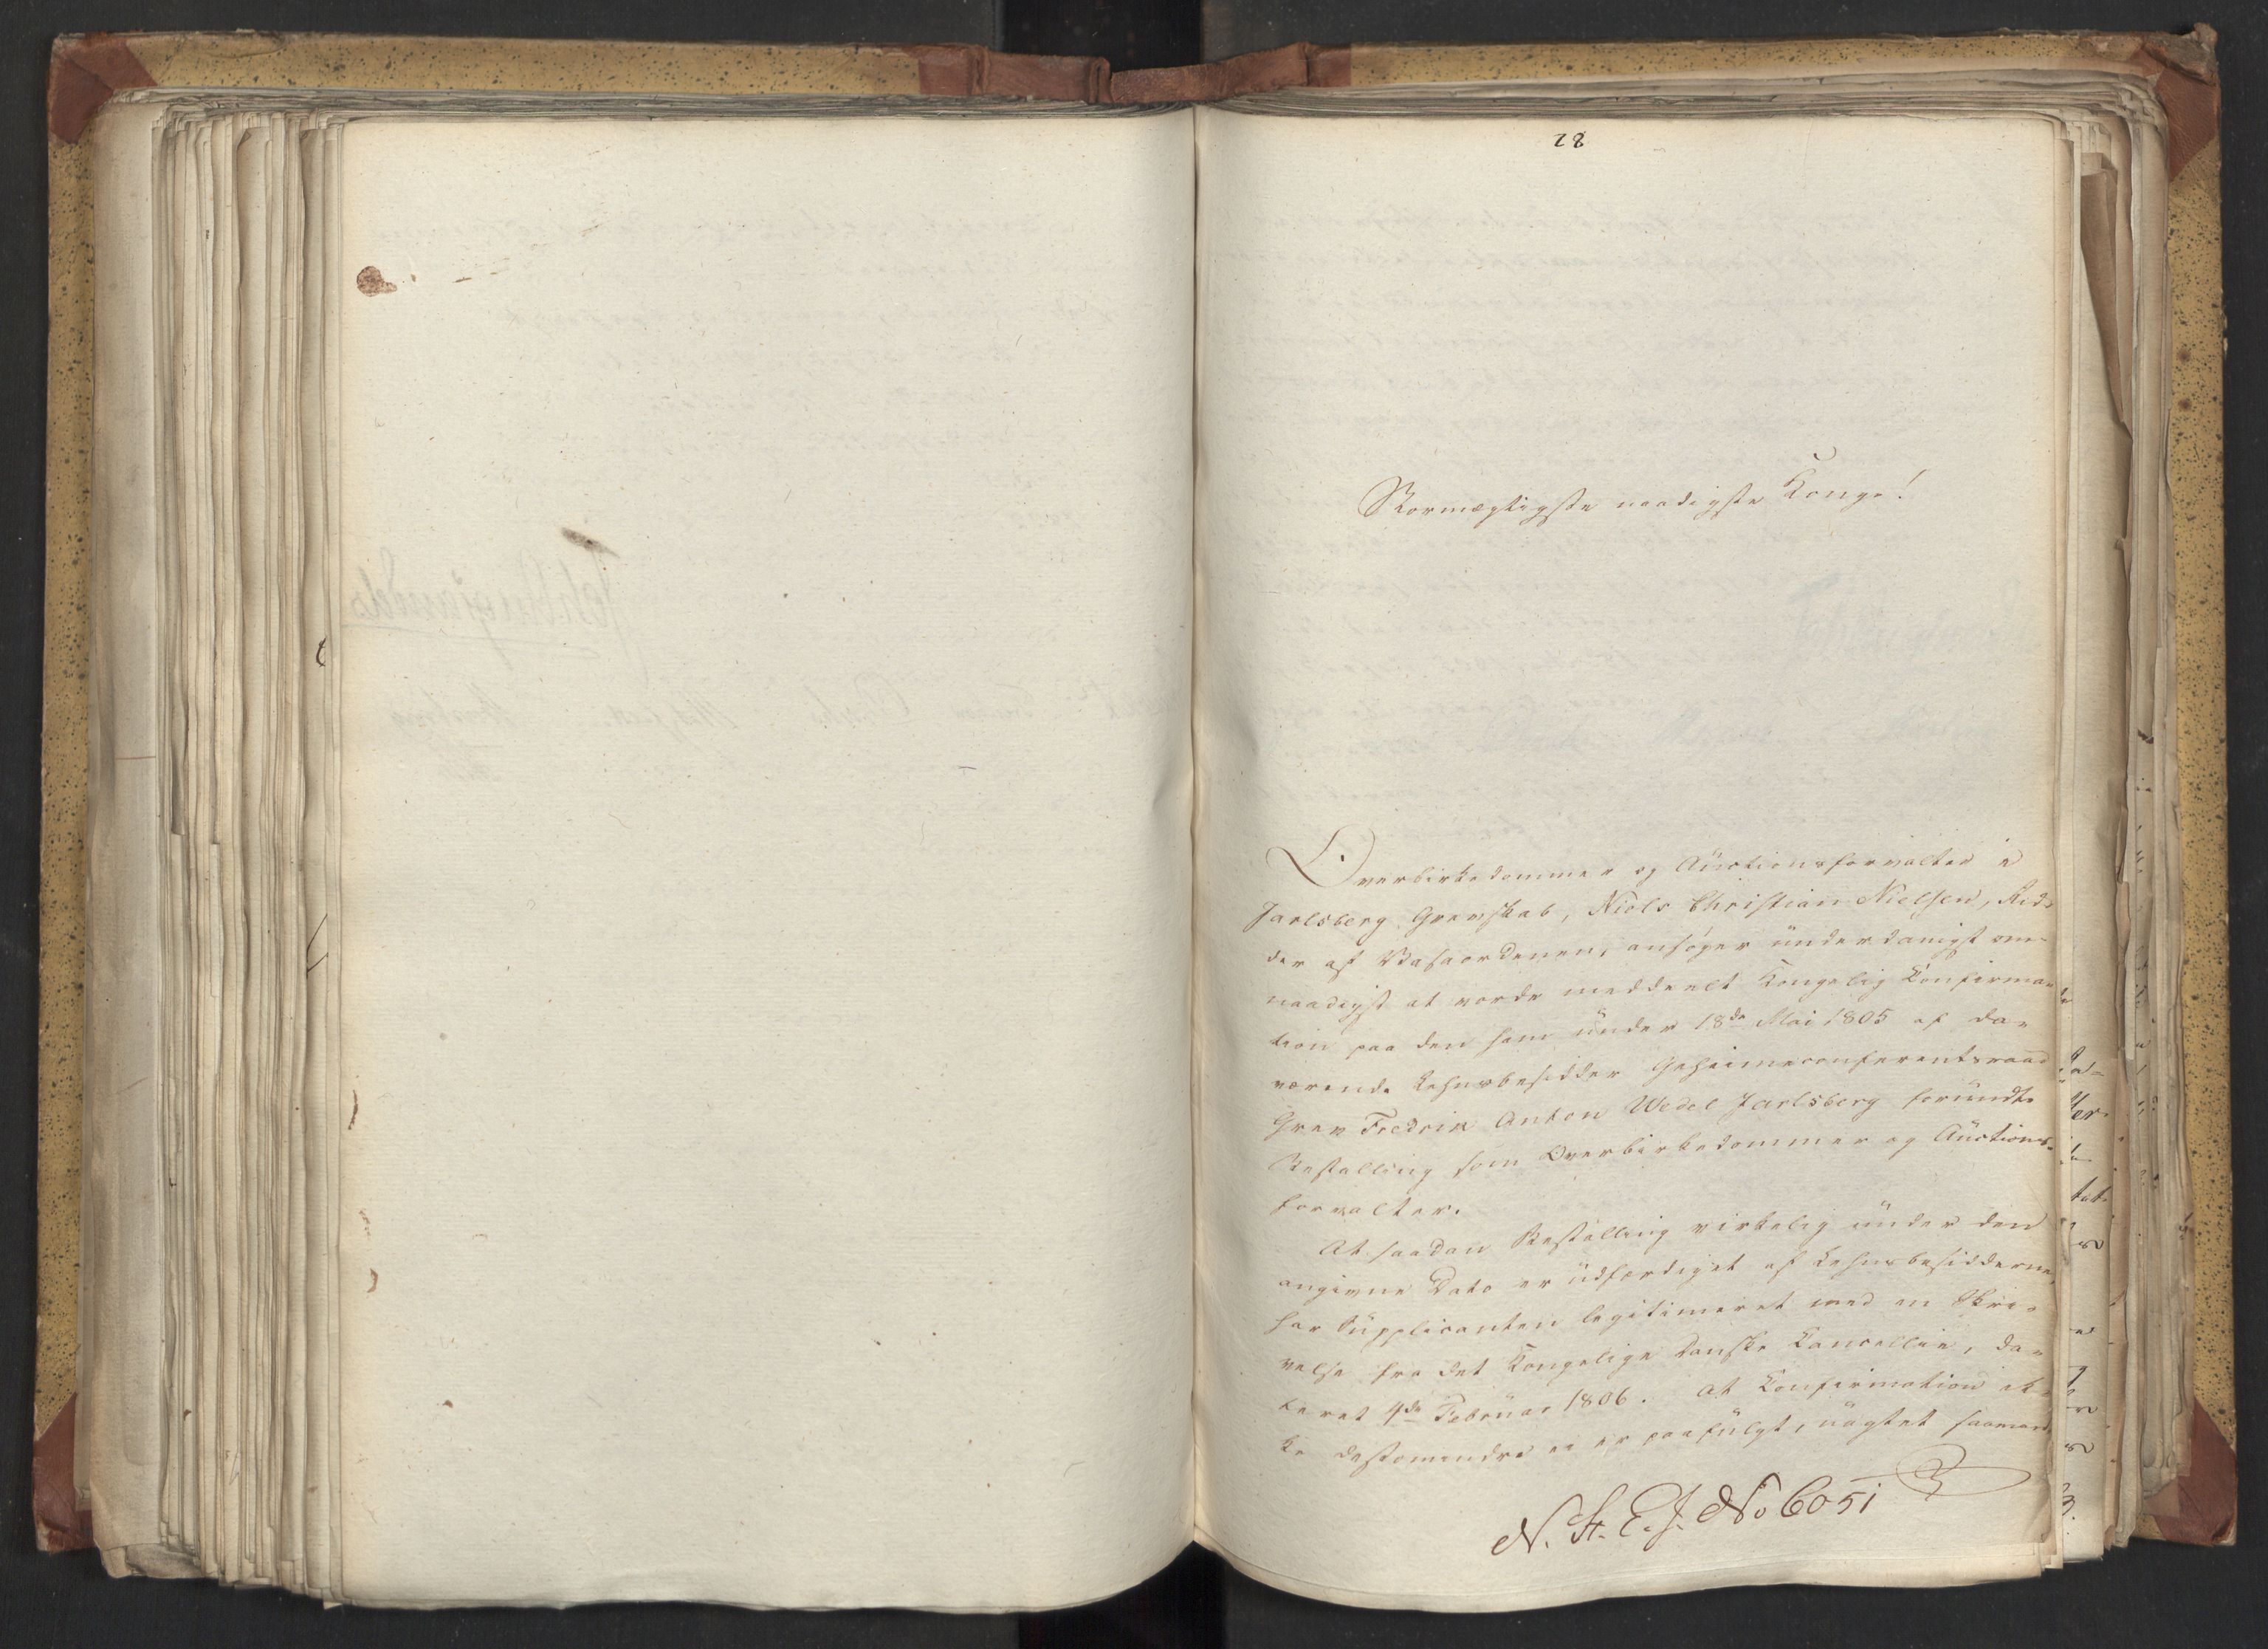 28
Stormægtigste naadigste Konge!
Overbirkedommer og Auctionsforvalter i
Jarlsberg Grevskab, Niels Christian Nielsen, Rid-
der af Vasaordenen, ansøger underdanigst om
naadigst at vorde meddeelt Kongelig Confirma-
tion paa den ham under 18de Mai 1805 af da-
værende Lehnsbesidder Geheimeconferentsraad
Grev Fredrik Anton Wedel Jarlsberg forundte
Bestalling som Overbirkedommer og Auctions-
forvalter.
At saadan Bestalling virkelig under den
angivne Dato er udfærdiget af Lehnsbesidderne,
har Supplicanten legitimeret med en Skri-
velse fra det Kongelige danske Cancellie, da-
teret 4de Februar 1806. At Confirmation ik-
ke destomindre ei er paafulgt, uagtet
N. St. E. J. No 6051